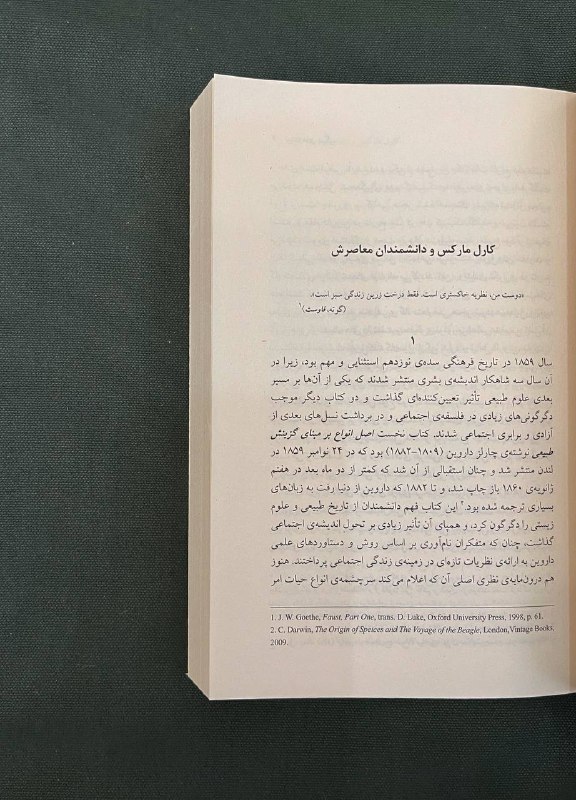 کارل مارکس و دانشمندان معاصرش
«دوست من، نظریه خاکستری است. فقط درخت زرین زندگی سبز است».
(گوته، فاوست)۱
۱
سال ۱۸۵۹ در تاریخ فرهنگی سده‌ی نوزدهم استثنایی و مهم بود، زیرا در
آن سال سه شاهکار اندیشه‌ی بشری منتشر شدند که یکی از آن‌ها بر مسیر
بعدی علوم طبیعی تأثیر تعیین‌کننده‌ای گذاشت و دو کتاب دیگر موجب
دگرگونی‌های زیادی در فلسفه‌ی اجتماعی و در برداشت نسل‌های بعدی از
آزادی و برابری اجتماعی شدند. کتاب نخست اصل انواع بر مبنای گزینش
طبیعی نوشته‌ی چارلز داروین (۱۸۰۹–۱۸۸۲) بود که در ۲۴ نوامبر ۱۸۵۹ در
لندن منتشر شد و چنان استقبالی از آن شد که کمتر از دو ماه بعد در هفتم
ژانویه‌ی ۱۸۶۰ باز چاپ شد، و تا ۱۸۸۲ که داروین از دنیا رفت به زبان‌های
بسیاری ترجمه شده بود.۲ این کتاب فهم دانشمندان از تاریخ طبیعی و علوم
زیستی را دگرگون کرد، و همپای آن تأثیر زیادی بر تحول اندیشه‌ی اجتماعی
گذاشت، چنان که متفکران نام‌آوری بر اساس روش و دستاوردهای علمی
داروین به ارائه‌ی نظریات تازه‌ای در زمینه‌ی زندگی اجتماعی پرداختند. هنوز
هم درون‌مایه‌ی نظری اصلی آن که اعلام می‌کند سرچشمه‌ی انواع حیات امر
1. J. W. Goethe, Faust, Part One, trans. D. Luke, Oxford University Press, 1998, p. 61.
2. C. Darwin, The Origin of Speices and The Voyage of the Beagle, London, Vintage Books,
2009.